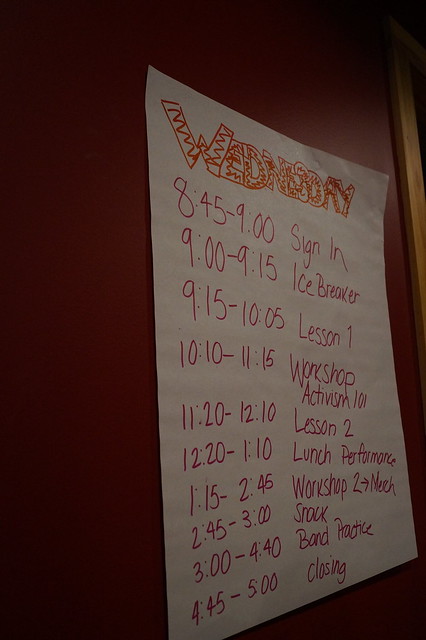 WEDNESDAY
8:45-9:00 Sign In
9:00-9:15 Ice Breaker
9:15-10:05 Lesson 1
10:10-11:15 Workshop
Activism 101
11:20-12:10 Lesson 2
12:20-1:10 Lunch Performance
1:15-2:45 Workshop 2→Merch
2:45-3:00 Snack
3:00-4:40 Band Practice
4:45-5:00 Closing